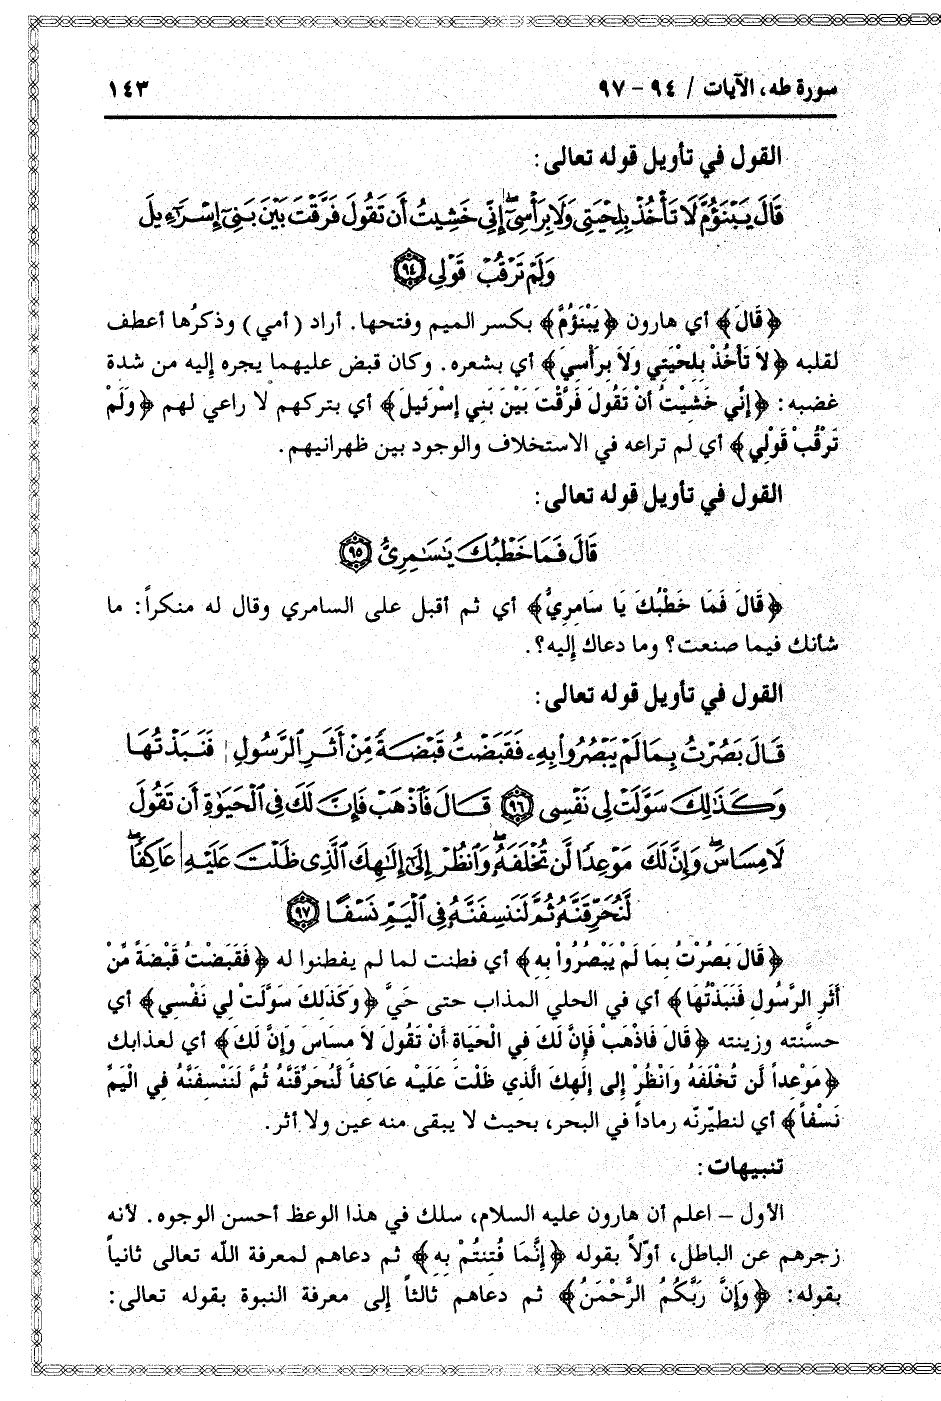 سورة طه، الآيات / ٩٤ - ٩٧ ١٤٣
القول في تأويل قوله تعالى:
قَالَ يَبْنَؤُمَّ لَا تَأْخُذْ بِلِحْيَتِي وَلَا بِرَأْسِيٓ ۖ إِنِّي خَشِيتُ أَن تَقُولَ فَرَّقْتَ بَيْنَ بَنِيٓ إِسْرَٰٓءِيلَ
وَلَمْ تَرْقُبْ قَوْلِي ٩٤
﴿قَالَ﴾ أي هارون ﴿يَبْنَؤُمَّ﴾ بكسر الميم وفتحها. أراد (أمي) وذكرُها أعطف
لقلبه ﴿لاَ تَأْخُذْ بِلِحْيَتِي وَلاَ بِرَأْسِيَ﴾ أي بشعره. وكان قبض عليهما يجره إليه من شدة
غضبه: ﴿إِنِّي خَشِيْتُ أَنْ تَقُولَ فَرَّقْتَ بَيْنَ بَنِي إِسْرَئيلَ﴾ أي بتركهم لا راعي لهم ﴿وَلَمْ
تَرْقُبْ قَوْلِي﴾ أي لم تراعه في الاستخلاف والوجود بين ظهرانيهم.
القول في تأويل قوله تعالى:
قَالَ فَمَا خَطْبُكَ يَٰسَٰمِرِيُّ ٩٥
﴿قَالَ فَمَا خَطْبُكَ يَا سَامِرِيُّ﴾ أي ثم أقبل على السامري وقال له منكراً: ما
شأنك فيما صنعت؟ وما دعاك إليه؟.
القول في تأويل قوله تعالى:
قَالَ بَصُرْتُ بِمَا لَمْ يَبْصُرُوا۟ بِهِۦ فَقَبَضْتُ قَبْضَةً مِّنْ أَثَرِ ٱلرَّسُولِ فَنَبَذْتُهَا
وَكَذَٰلِكَ سَوَّلَتْ لِي نَفْسِي ٩٦ قَالَ فَٱذْهَبْ فَإِنَّ لَكَ فِي ٱلْحَيَوٰةِ أَن تَقُولَ
لَا مِسَاسَ ۖ وَإِنَّ لَكَ مَوْعِدًا لَّن تُخْلَفَهُۥ ۖ وَٱنظُرْ إِلَىٰٓ إِلَٰهِكَ ٱلَّذِي ظَلْتَ عَلَيْهِ عَاكِفًا ۖ
لَّنُحَرِّقَنَّهُۥ ثُمَّ لَنَنسِفَنَّهُۥ فِي ٱلْيَمِّ نَسْفًا ٩٧
﴿قَالَ بَصُرْتُ بِمَا لَمْ يَبْصُرُواْ بِهِ﴾ أي فطنت لما لم يفطنوا له ﴿فَقَبَضْتُ قَبْضَةً مِّنْ
أَثَرِ الرَّسُولِ فَنَبَذْتُهَا﴾ أي في الحلي المذاب حتى حَيَّ ﴿وَكَذَلِكَ سَوَّلَتْ لِي نَفْسِي﴾ أي
حسَّنته وزينته ﴿قَالَ فَاذْهَبْ فَإِنَّ لَكَ فِي الْحَيَاةِ أَنْ تَقُولَ لاَ مِسَاسَ وَإِنَّ لَكَ﴾ أي لعذابك
﴿مَوْعِداً لَن تُخْلَفَهُ وَانْظُرْ إِلى إِلَهِكَ الَّذِي ظَلْتَ عَلَيْهِ عَاكِفاً لَنُحَرِّقَنَّهُ ثُمَّ لَنَنْسِفَنَّهُ فِي الْيَمِّ
نَسْفاً﴾ أي لنطيّرنّه رماداً في البحر، بحيث لا يبقى منه عين ولا أثر.
تنبيهات:
الأول – اعلم أن هارون عليه السلام، سلك في هذا الوعظ أحسن الوجوه. لأنه
زجرهم عن الباطل، أوّلاً بقوله ﴿إِنَّمَا فُتِنتُمْ بِهِ﴾ ثم دعاهم لمعرفة اللّه تعالى ثانياً
بقوله: ﴿وَإِنَّ رَبَّكُمُ الرَّحْمَنُ﴾ ثم دعاهم ثالثاً إلى معرفة النبوة بقوله تعالى: